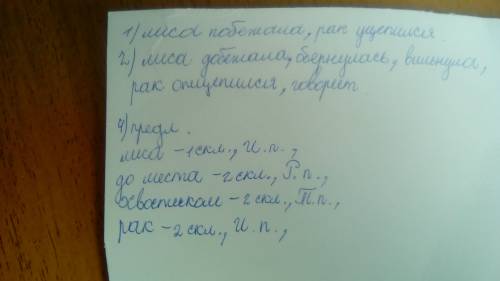 1) лиса побежала, рак уцепился.
2) лиса добежала, обернулась, вильнула,
рак отцепился, говорит.
4) предл.
лиса - 1 скл., И.п.,
до места - 2 скл., Р.п.,
хвостиком - 2 скл., Т.п.,
рак - 2 скл., И.п.,